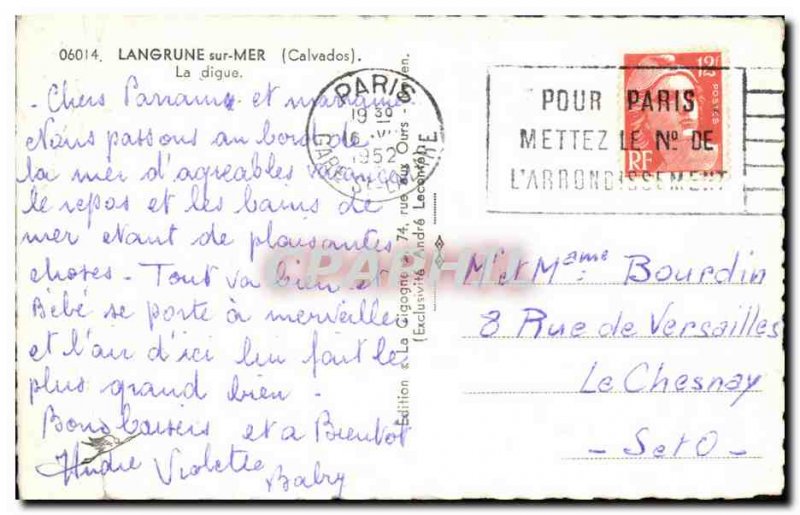 06014. LANGRUNE sur-MER (Calvados).
La digue.
- Chers Parrain et marraine
Nous passons au bord de
la mer d'agréables vacances
le repos et les bains de
mer étant de plaisantes
choses - Tout va bien et
Bébé se porte à merveille
et l'air d'ici lui fait le
plus grand bien -
Bons baisers et a Bientôt
André Violette
Baby
Edition « La Cigogne » 74, rue aux Ours - Rouen.
(Exclusivité André Leconte)
PARIS
1952
GARE ST-LAZARE
POUR PARIS
METTEZ LE No DE
L'ARRONDISSEMENT
12f
POSTES
RF
CPAPHIL
Mr et Mame Bourdin
8 Rue de Versailles
Le Chesnay
- S et O -